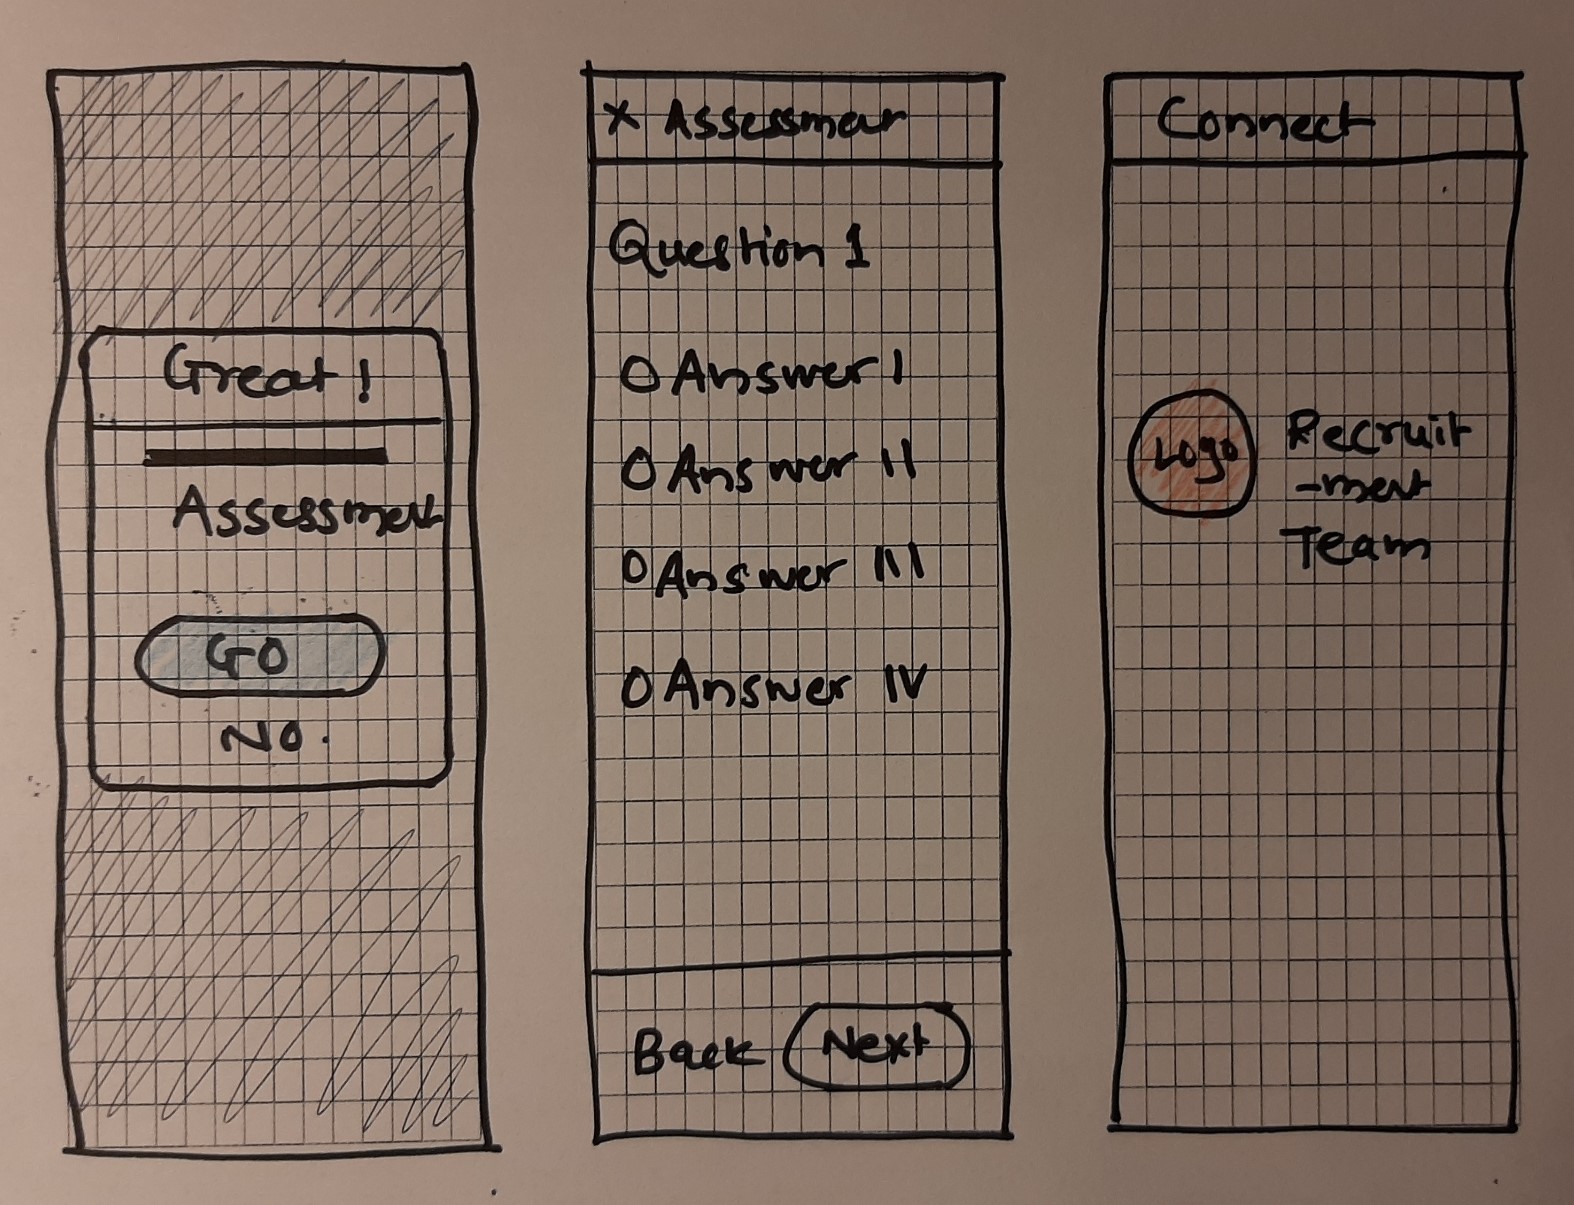 Great!
Assessment
GO
NO.
x Assessment
Question 1
O Answer I
O Answer II
O Answer III
O Answer IV
Back Next
Connect
Logo
Recruit
-ment
Team